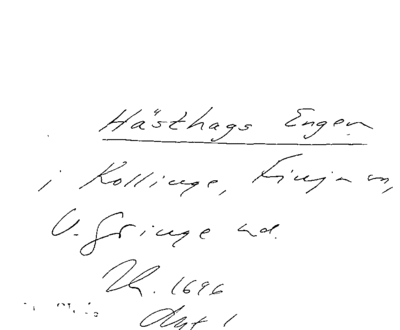 Hästhags Engen
i Kollinge, Finja sn,
V. Göinge hd.
Lk. 1696
Akt 1